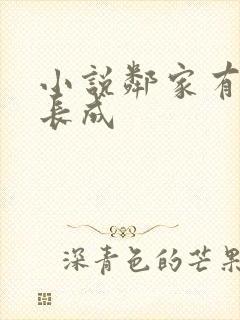 小說鄰家有
長成
深青色的芒果